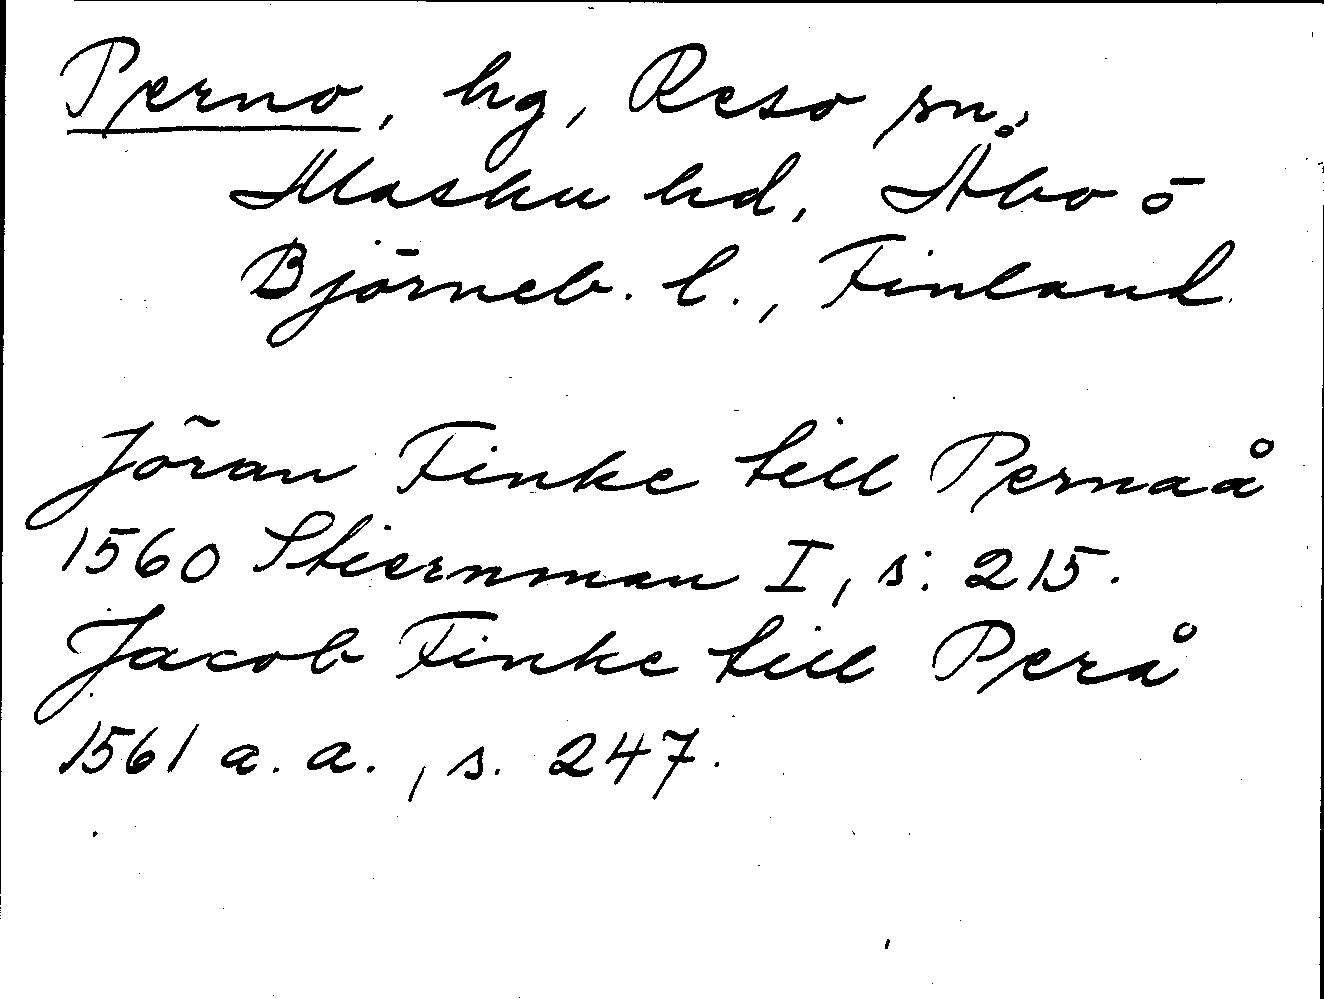 Perno, hg, Reso sn,
Masku hd, Åbo o
Björneb. l., Finland
Jöran Finke till Pernaå
1560 Stiernman I, s. 215.
Jacob Finke till Perå
1561 a. a., s. 247.